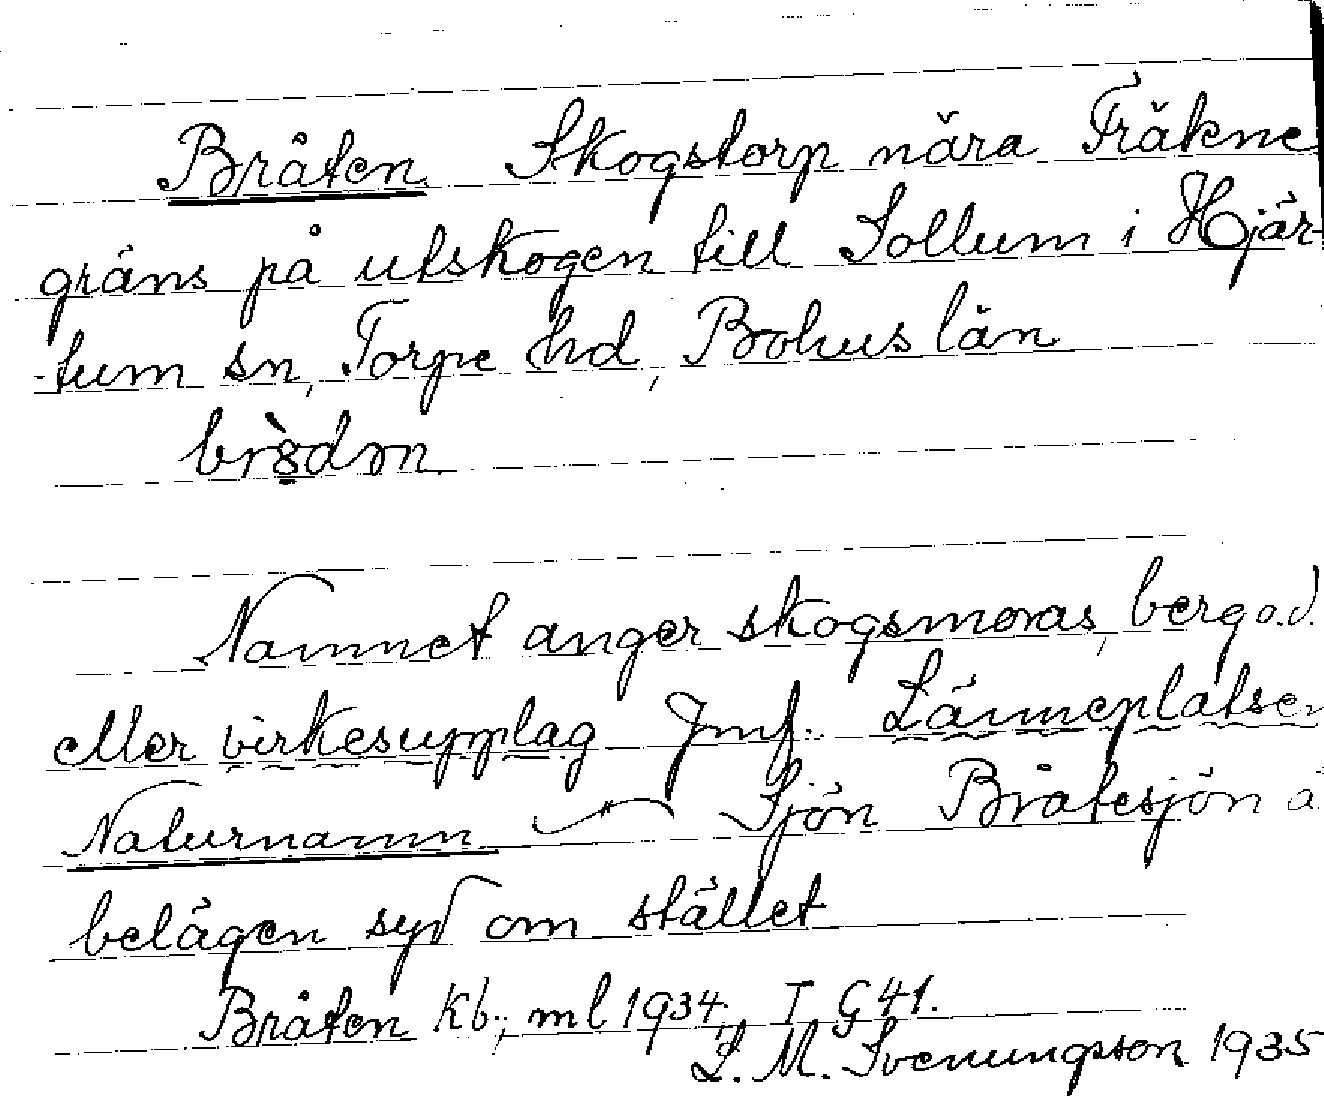 Bråten Skogstorp nära Fräkne
gräns på utskogen till Sollum i Hjär-
tum sn, Torpe hd, Bohus län
brådan
Namnet anger skogsmoras, berg o.d.
eller virkesupplag Jmf. Länneplatsen
Naturnamn Sjön Bråtesjön ä
belägen syd om stället
Bråten kb.; ml 1934; T G 41.
L. M. Svenungsson 1935